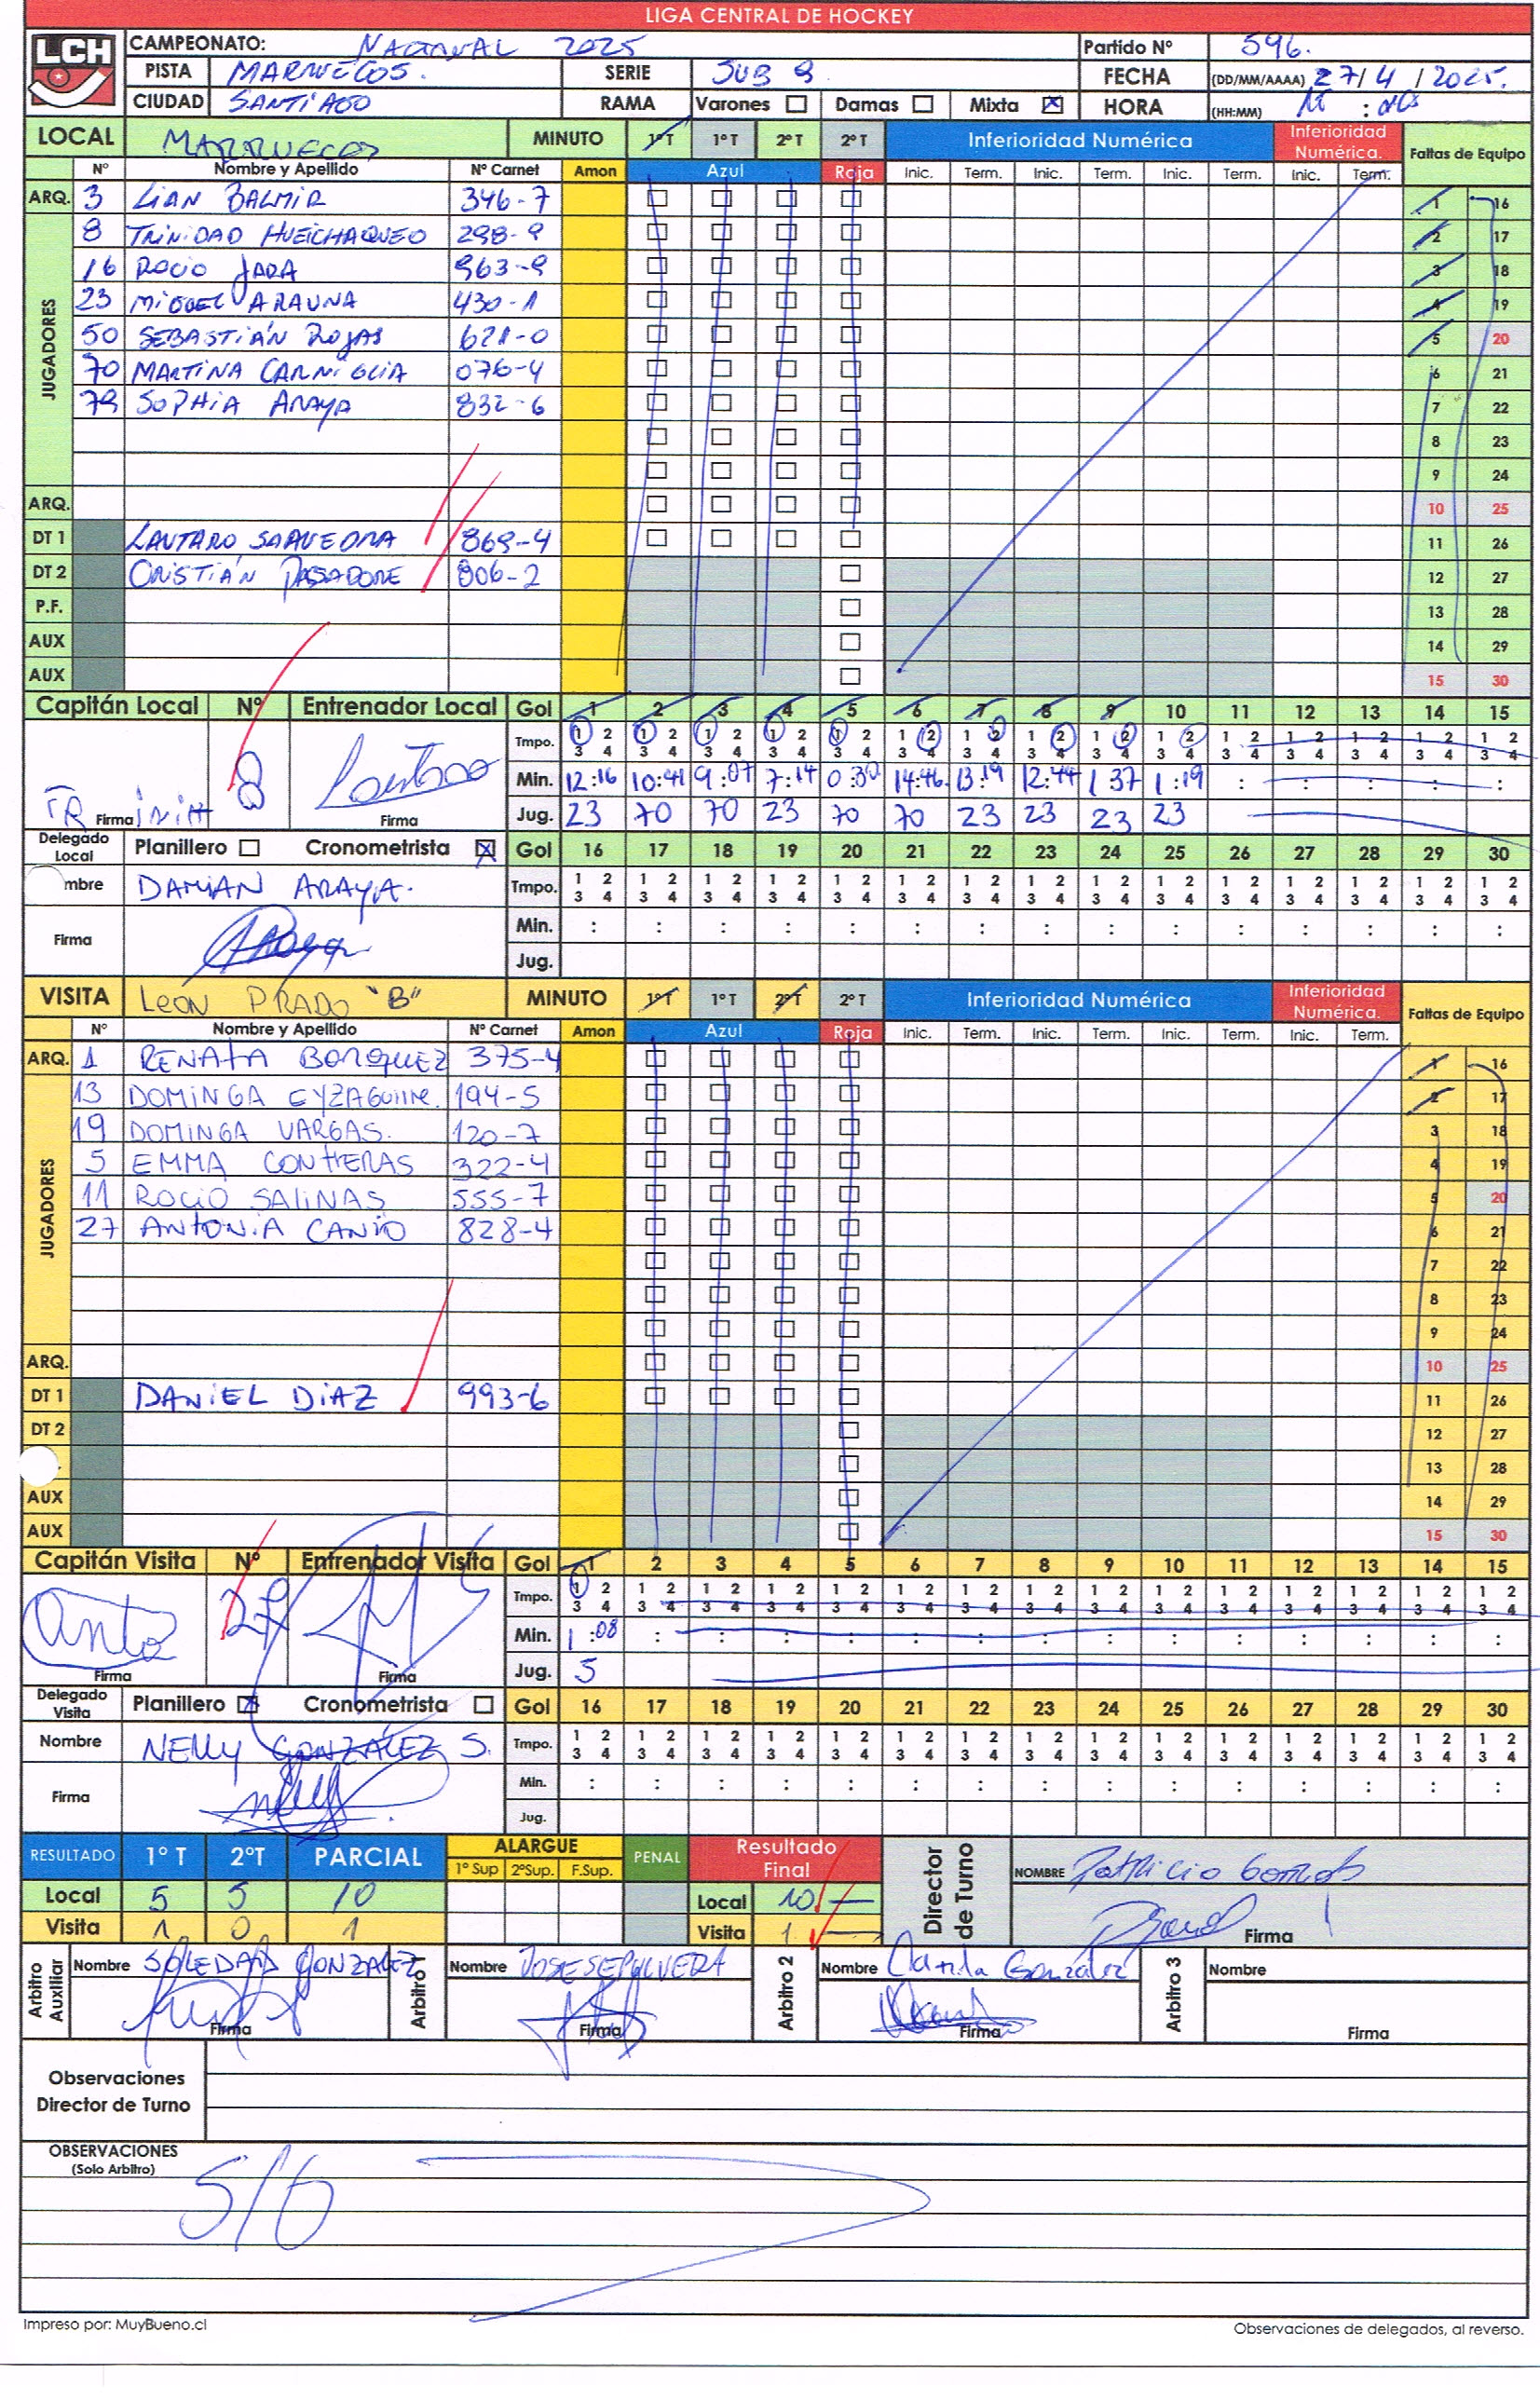 LIGA CENTRAL DE HOCKEY
LCH CAMPEONATO: NACIONAL 2025 Partido Nº 596.
PISTA MARRUECOS. SERIE SUB 9 FECHA (DD/MM/AAAA) 27/4/2025.
CIUDAD SANTIAGO RAMA Varones ☐ Damas ☐ Mixta ☒ HORA (HH:MM) :
LOCAL MARRUECOS MINUTO 1º T 1º T 2º T 2º T Inferioridad Numérica Inferioridad Numérica. Faltas de Equipo
Nº Nombre y Apellido Nº Carnet Amon Azul Roja Inic. Term. Inic. Term. Inic. Term. Inic. Term.
ARQ. 3 LIAN BALMIR 346-7 1 16
JUGADORES
8 TRINIDAD HUEICHAQUEO 298-9 2 17
16 ROCIO JARA 963-9 3 18
23 MIGUEL ARAUNA 430-1 4 19
50 SEBASTIÁN ROJAS 621-0 5 20
70 MARTINA CARNIGLIA 076-4 6 21
79 SOPHIA ARAYA 832-6 7 22
8 23
9 24
ARQ. 10 25
DT 1 LAUTARO SAAVEDRA 869-4 11 26
DT 2 CRISTIÁN PASADORE 806-2 12 27
P.F. 13 28
AUX 14 29
AUX 15 30
Capitán Local Nº Entrenador Local Gol 1 2 3 4 5 6 7 8 9 10 11 12 13 14 15
Tmpo. 1 2 3 4 1 2 3 4 1 2 3 4 1 2 3 4 1 2 3 4 1 2 3 4 1 2 3 4 1 2 3 4 1 2 3 4 1 2 3 4 1 2 3 4 1 2 3 4 1 2 3 4 1 2 3 4 1 2 3 4
8 Min. 12:16 10:41 9:07 7:14 0:30 14:46 13:19 12:44 1 37 1:19 : : : : :
Firma Firma Jug. 23 70 70 23 70 70 23 23 23 23
Delegado Local Planillero ☐ Cronometrista ☒ Gol 16 17 18 19 20 21 22 23 24 25 26 27 28 29 30
mbre DAMIAN ARAYA. Tmpo. 1 2 3 4 1 2 3 4 1 2 3 4 1 2 3 4 1 2 3 4 1 2 3 4 1 2 3 4 1 2 3 4 1 2 3 4 1 2 3 4 1 2 3 4 1 2 3 4 1 2 3 4 1 2 3 4 1 2 3 4
Firma Min. : : : : : : : : : : : : : : :
Jug.
VISITA LEON PRADO "B" MINUTO 1º T 1º T 2º T 2º T Inferioridad Numérica Inferioridad Numérica. Faltas de Equipo
Nº Nombre y Apellido Nº Carnet Amon Azul Roja Inic. Term. Inic. Term. Inic. Term. Inic. Term.
ARQ. 1 RENATA BORQUEZ 375-4 1 16
JUGADORES
13 DOMINGA EYZAGUIRRE. 194-5 2 17
19 DOMINGA VARGAS. 120-7 3 18
5 EMMA CONTRERAS 322-4 4 19
11 ROCIO SALINAS 555-7 5 20
27 ANTONIA CANIO 828-4 6 21
7 22
8 23
9 24
ARQ. 10 25
DT 1 DANIEL DIAZ 993-6 11 26
DT 2 12 27
13 28
AUX 14 29
AUX 15 30
Capitán Visita Nº Entrenador Visita Gol 1 2 3 4 5 6 7 8 9 10 11 12 13 14 15
Tmpo. 1 2 3 4 1 2 3 4 1 2 3 4 1 2 3 4 1 2 3 4 1 2 3 4 1 2 3 4 1 2 3 4 1 2 3 4 1 2 3 4 1 2 3 4 1 2 3 4 1 2 3 4 1 2 3 4 1 2 3 4
Anto 27 Min. 1:08 : : : : : : : : : : : : : :
Firma Firma Jug. 5
Delegado Visita Planillero ☒ Cronometrista ☐ Gol 16 17 18 19 20 21 22 23 24 25 26 27 28 29 30
Nombre NELLY GONZALEZ S. Tmpo. 1 2 3 4 1 2 3 4 1 2 3 4 1 2 3 4 1 2 3 4 1 2 3 4 1 2 3 4 1 2 3 4 1 2 3 4 1 2 3 4 1 2 3 4 1 2 3 4 1 2 3 4 1 2 3 4 1 2 3 4
Firma Min. : : : : : : : : : : : : : : :
Jug.
RESULTADO 1º T 2ºT PARCIAL ALARGUE 1º Sup 2ºSup. F.Sup. PENAL Resultado Final Director de Turno NOMBRE Patricio
Local 5 5 10 Local 10
Visita 1 0 1 Visita 1 Firma
Arbitro Auxiliar Nombre SOLEDAD GONZALEZ Arbitro 1 Nombre JOSE SEPULVEDA Arbitro 2 Nombre Camila González Arbitro 3 Nombre
Firma Firma Firma Firma
Observaciones
Director de Turno
OBSERVACIONES
(Solo Arbitro) S/O
Impreso por: MuyBueno.cl Observaciones de delegados, al reverso.